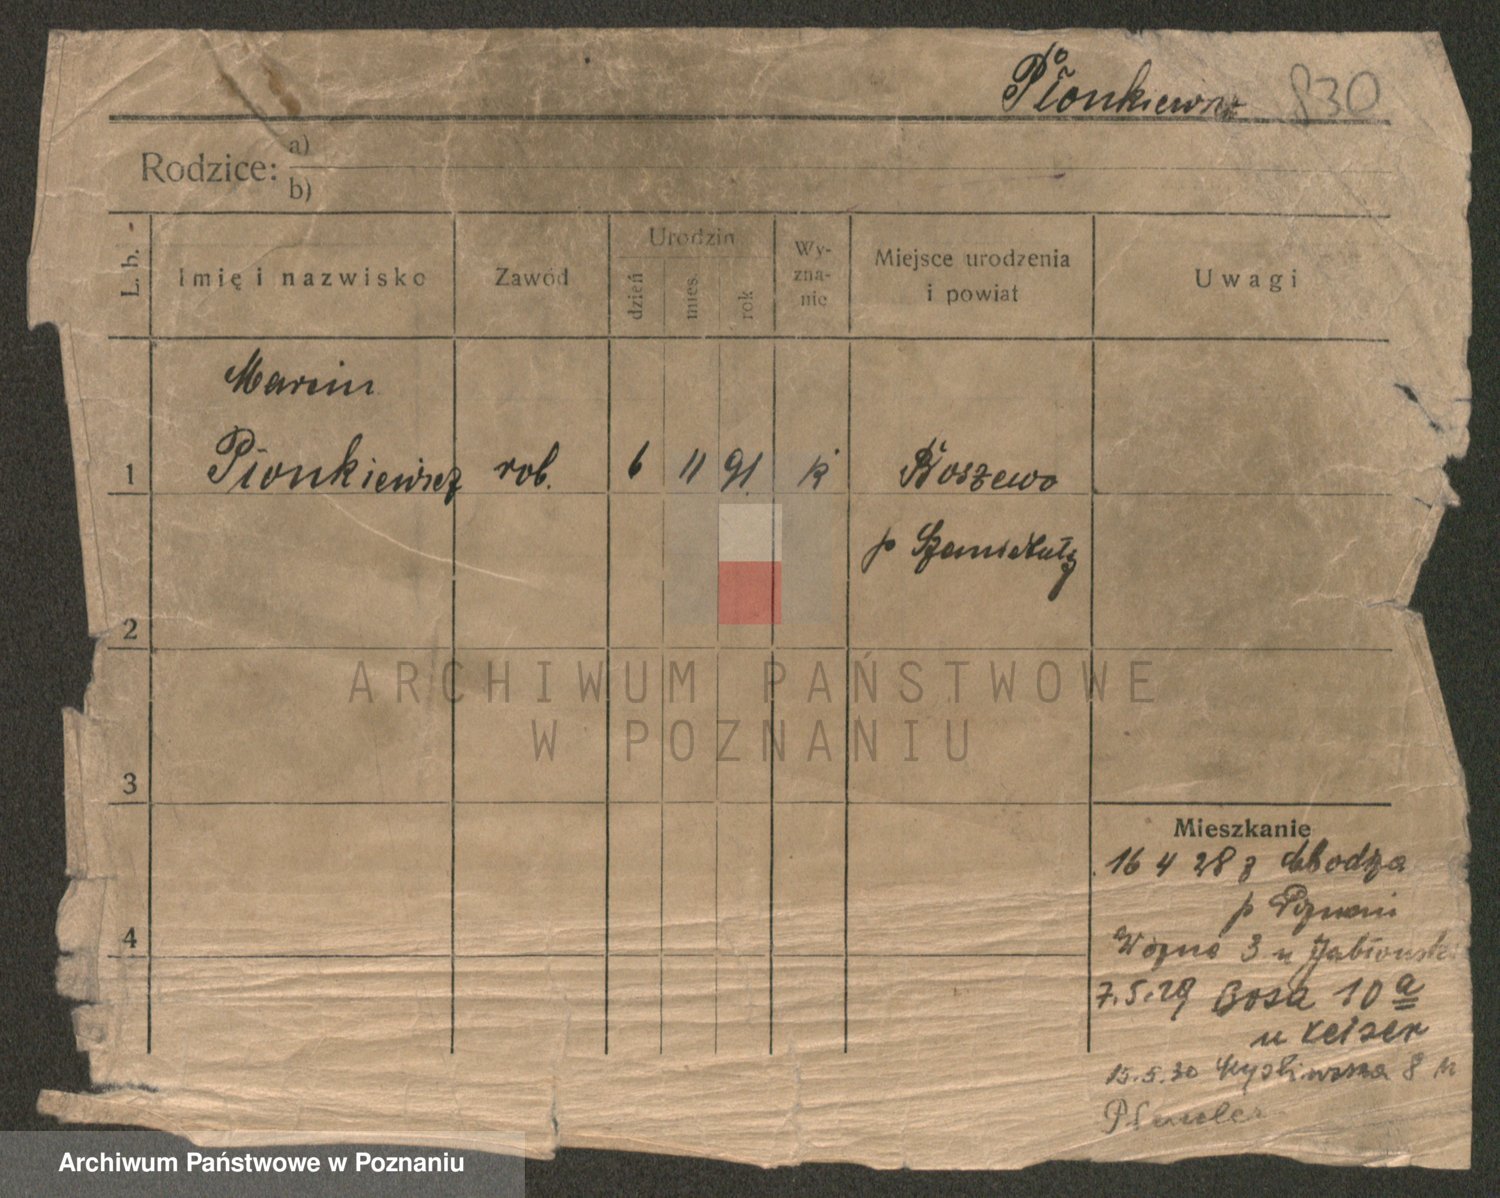 Pionkiewicz 830
Rodzice: a)
b)
L. b. Imię i nazwisko Zawód Urodzin dzień mies. rok Wy-zna-nie Miejsce urodzenia i powiat Uwagi
Marcin
1 Pionkiewicz rob. 6 11 91 k
p Szamotuły
2
3
4
Mieszkanie
16 4 28 z
p Poznań
3 u Jabłoński
7.5.29 Bosa 10 a
u Keiser
15.5.30 8 u
ARCHIWUM PAŃSTWOWE
W POZNANIU
Archiwum Państwowe w Poznaniu